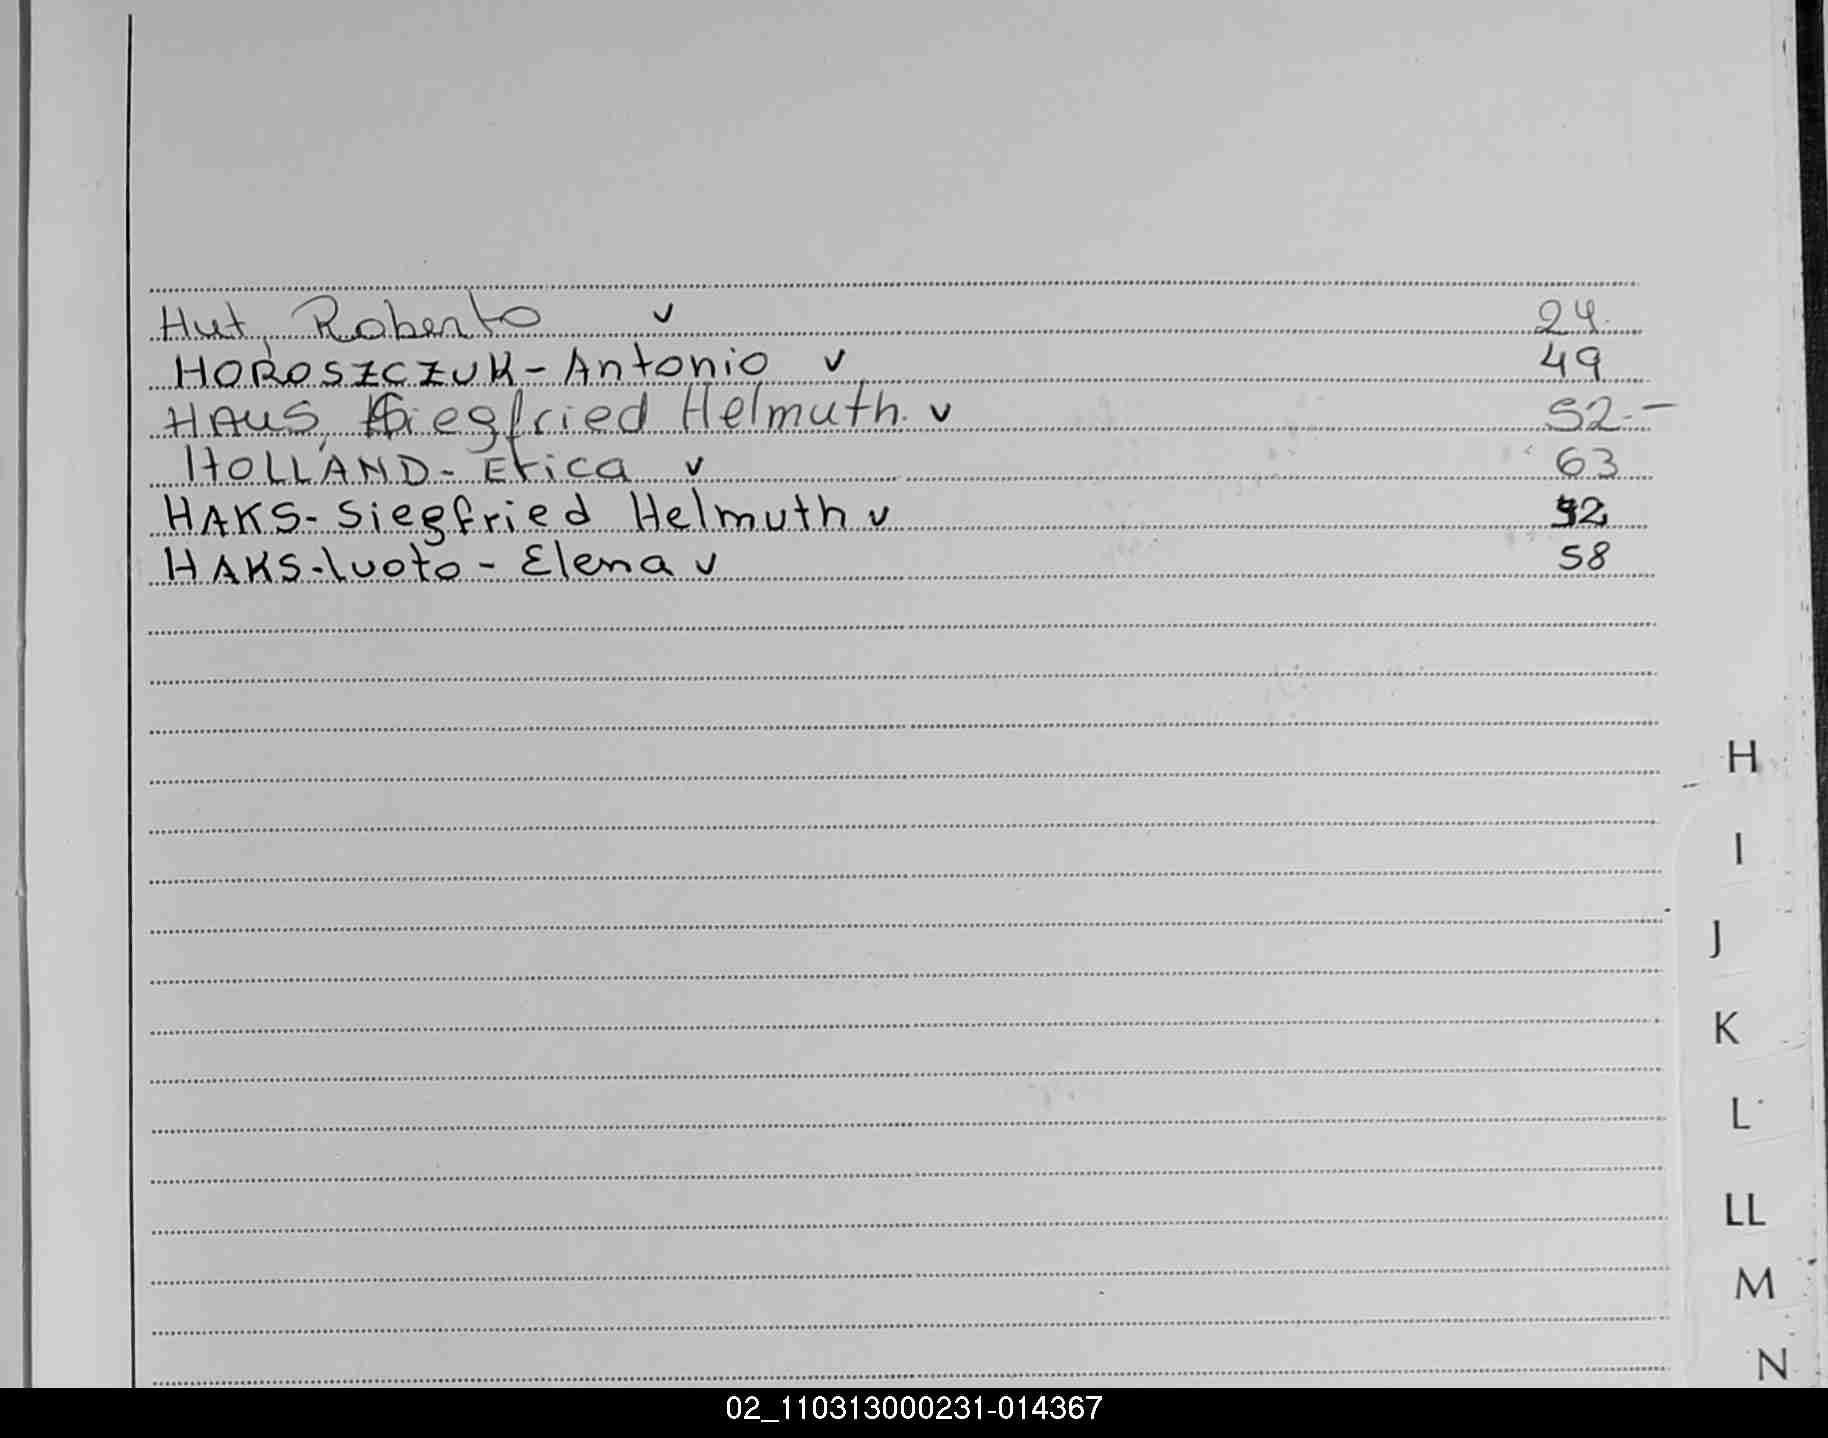 Hut, Roberto v 24.
HOROSZCZUK - Antonio v 49
HAUS, Siegfried Helmuth. v 52.-
HOLLAND - Erica v 63
HAKS - Siegfried Helmuth v 52
HAKS - luoto - Elena v 58
H
I
J
K
L
LL
M
N
02_110313000231-014367